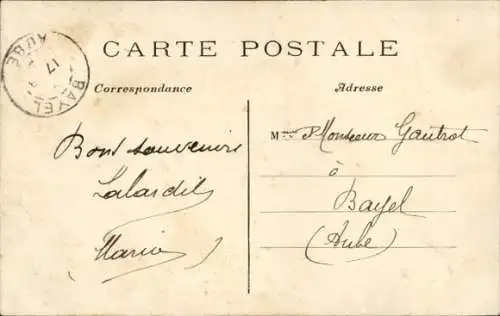 BAYEL AUBE
17
CARTE POSTALE
Correspondance
Adresse
Bons souvenirs
Maria
M et Monsieur Gautrot
à
Bayel
(Aube)